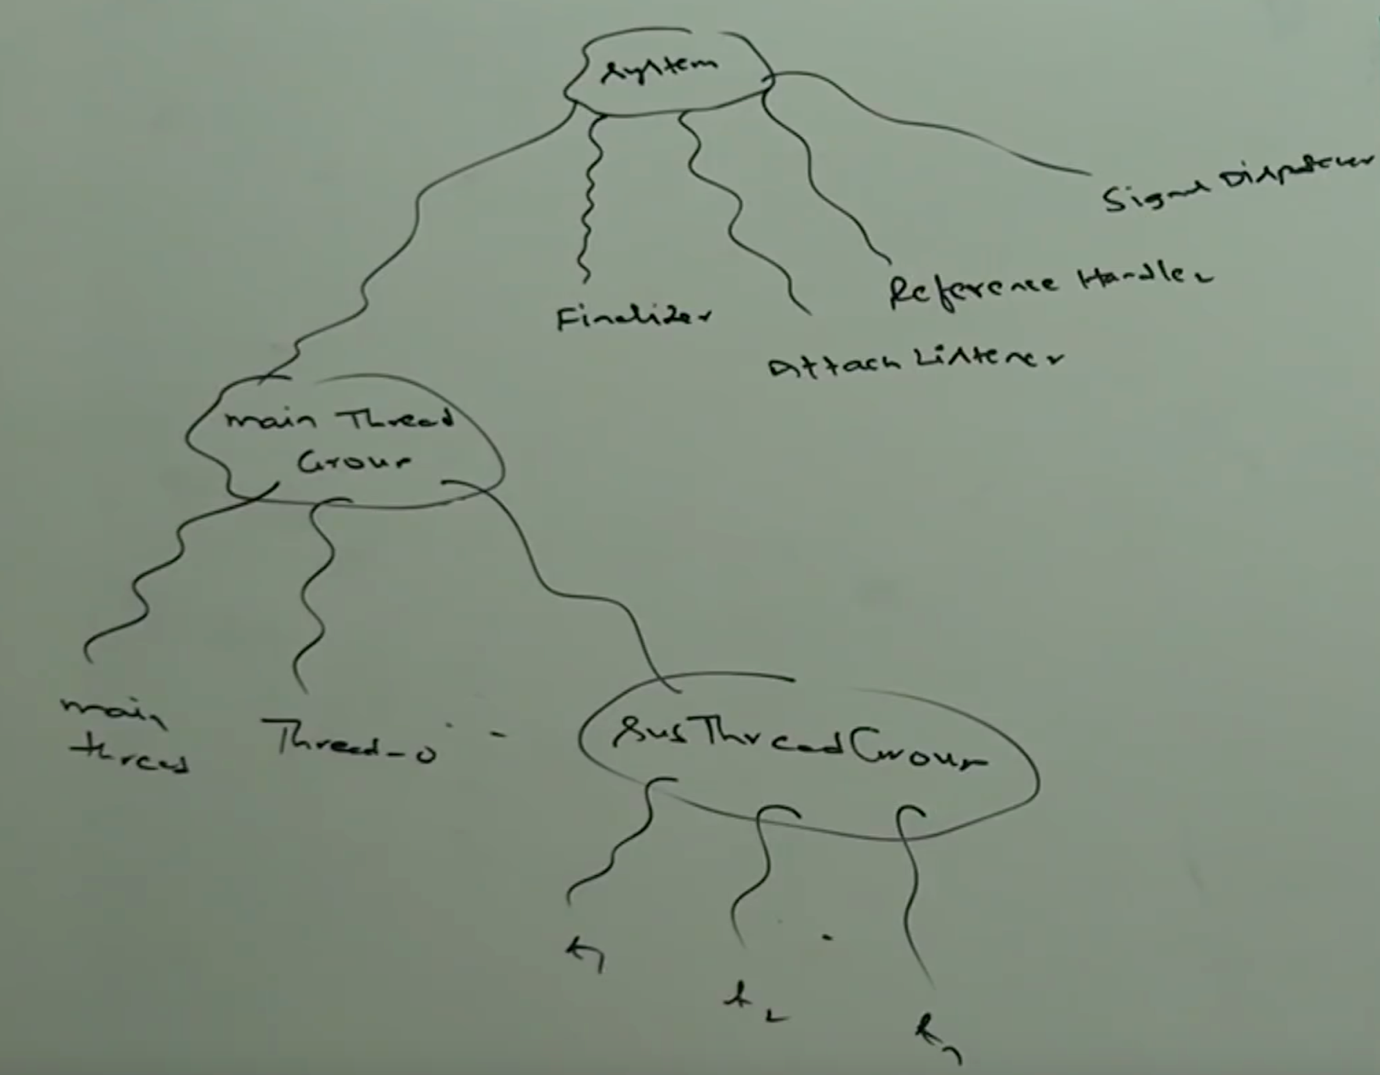 System
Signal Dispatcher
Reference Handler
Finalizer
Attach Listener
main Thread
Group
main
thread
Thread-0
SubThreadGroup
t1
t2
tn